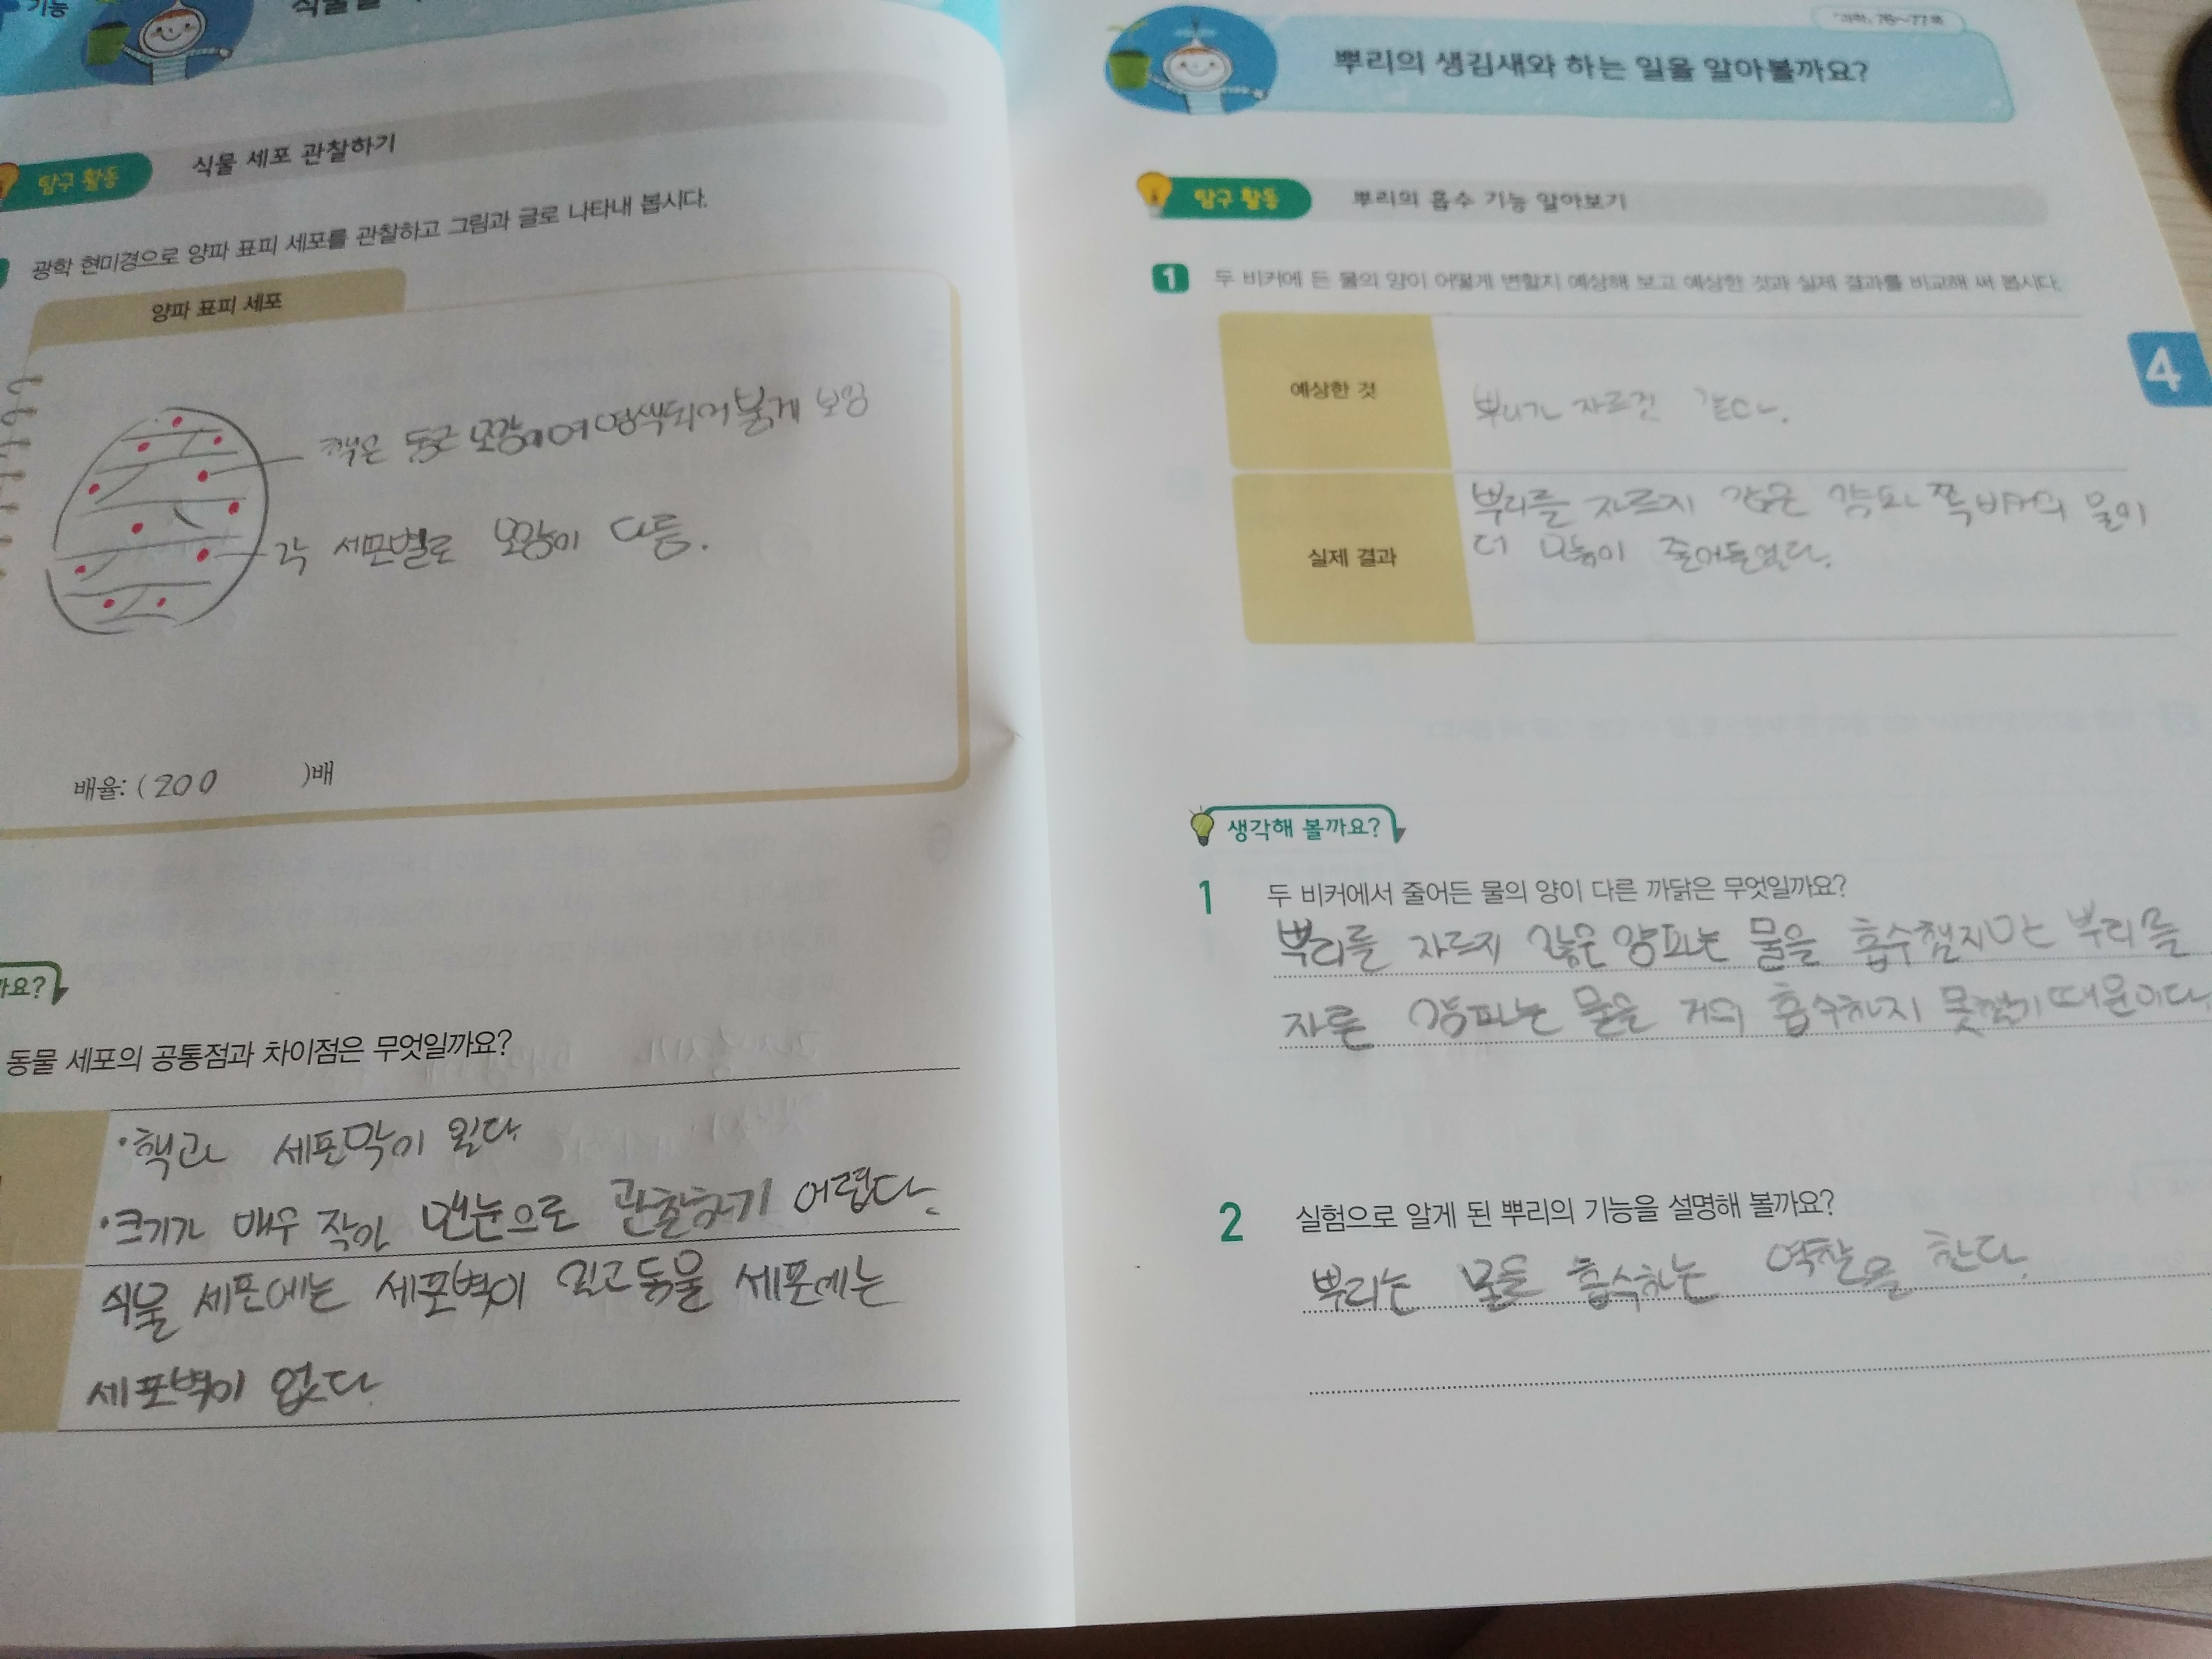 기능
탐구 활동
식물 세포 관찰하기
광학 현미경으로 양파 표피 세포를 관찰하고 그림과 글로 나타내 봅시다.
양파 표피 세포
핵은 둥근 모양이며 염색되어 붉게 보임
각 세포별로 모양이 다름.
배율: (200 )배
까요?
동물 세포의 공통점과 차이점은 무엇일까요?
·핵과 세포막이 있다
·크기가 매우 작아 맨눈으로 관찰하기 어렵다.
식물 세포에는 세포벽이 있고 동물 세포에는
세포벽이 없다.
「과학」 76~77쪽
뿌리의 생김새와 하는 일을 알아볼까요?
탐구 활동
뿌리의 흡수 기능 알아보기
1 두 비커에 든 물의 양이 어떻게 변할지 예상해 보고 예상한 것과 실제 결과를 비교해 써 봅시다.
4
예상한 것
뿌리가 자르진 같다.
실제 결과
뿌리를 자르지 않은 양파 쪽 비커의 물이
더 많이 줄어들었다.
생각해 볼까요?
1 두 비커에서 줄어든 물의 양이 다른 까닭은 무엇일까요?
뿌리를 자르지 않은 양파는 물을 흡수했지만 뿌리를
자른 양파는 물을 거의 흡수하지 못했기 때문이다.
2 실험으로 알게 된 뿌리의 기능을 설명해 볼까요?
뿌리는 물을 흡수하는 역할을 한다.